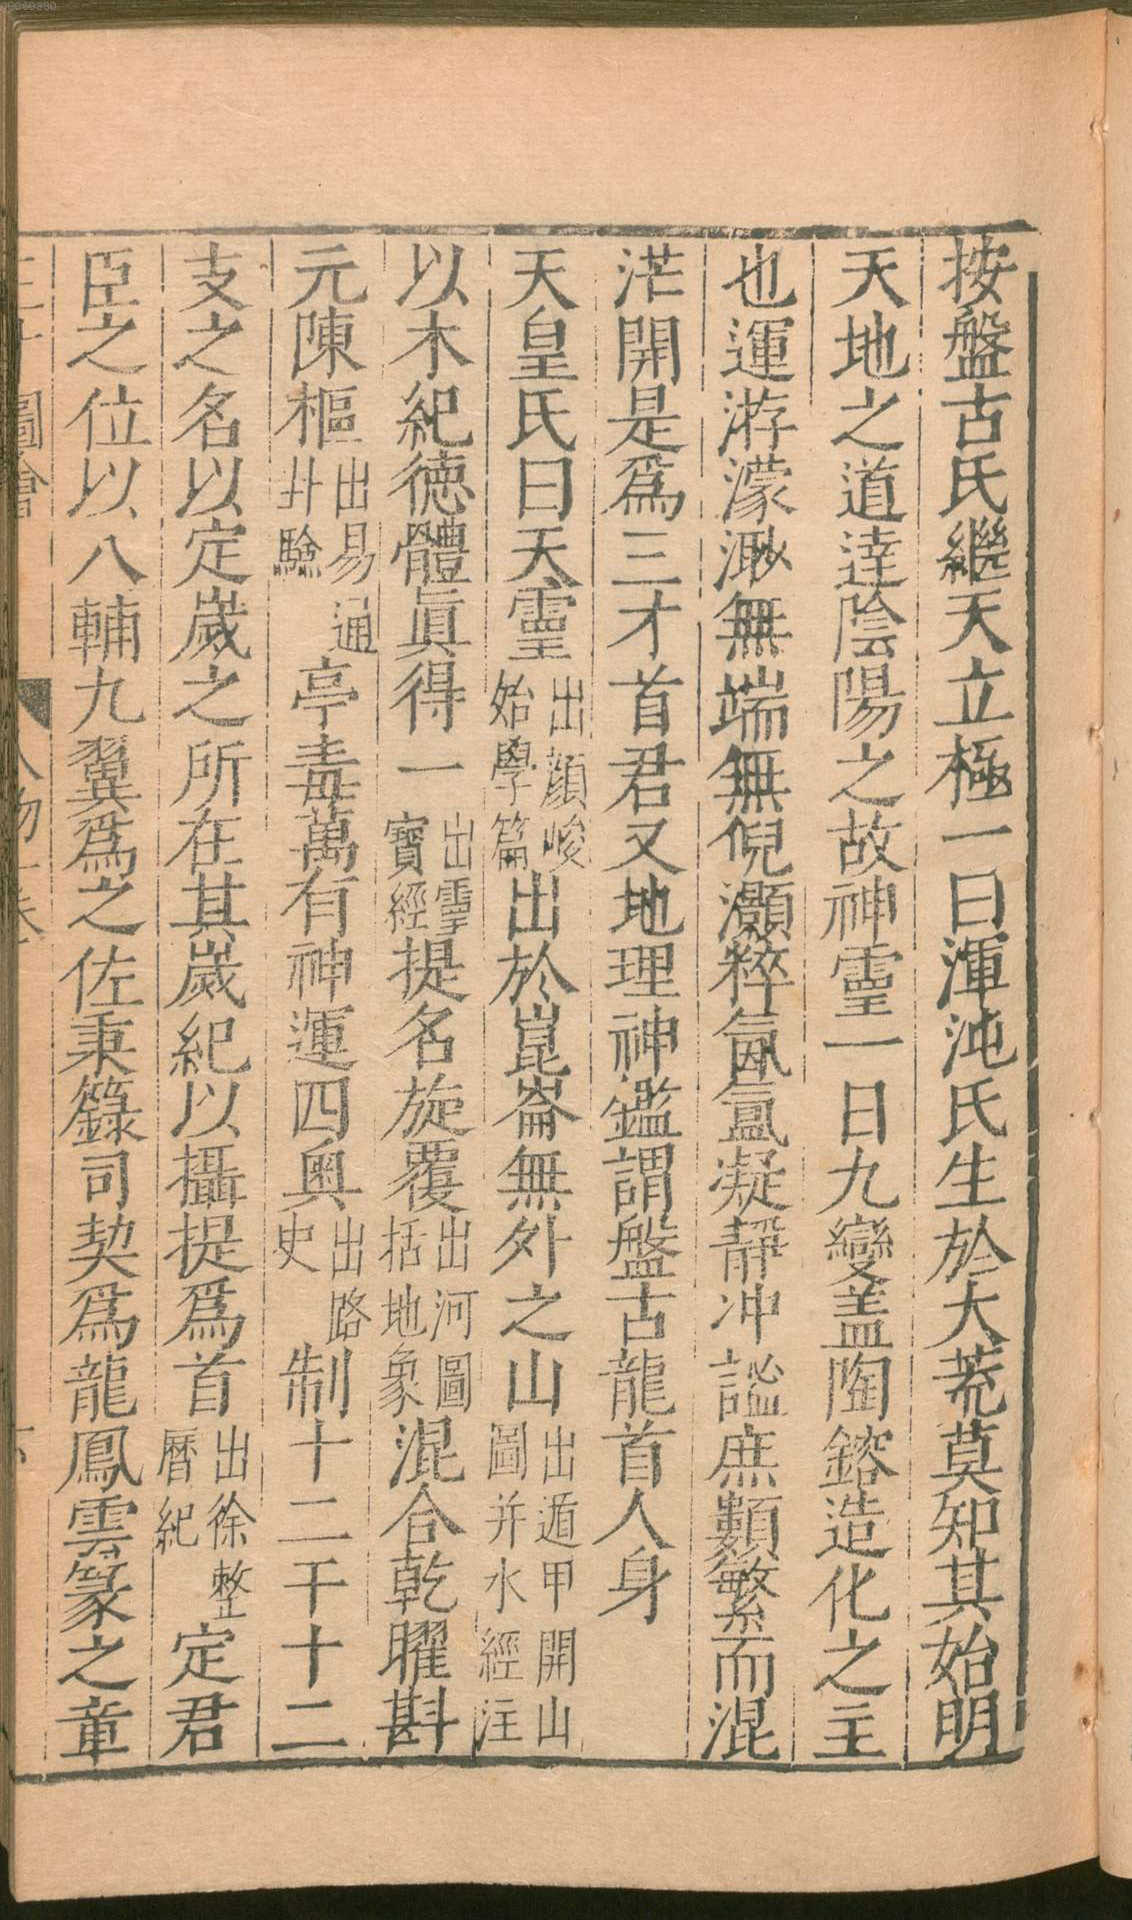 按盤古氏繼天立極一曰渾沌氏生於大荒莫知其始明
天地之道達陰陽之故神靈一日九變盖陶鎔造化之主
也運游濛渺無端無倪灝粹氤氳凝靜冲謐庶類繁而混
茫開是為三才首君又地理神鑑謂盤古龍首人身
天皇氏曰天靈出顔峻始學篇出於崑崙無外之山出遁甲開山圖并水經注
以木紀德體眞得一出靈寶經提名旋覆出河圖括地象混合乾曜斟
元陳樞出易通卦驗亭毒萬有神運四奥出路史制十二干十二
支之名以定歲之所在其歲紀以攝提為首出徐整曆紀定君
臣之位以八輔九翼為之佐秉籙司契為龍鳳雲篆之章